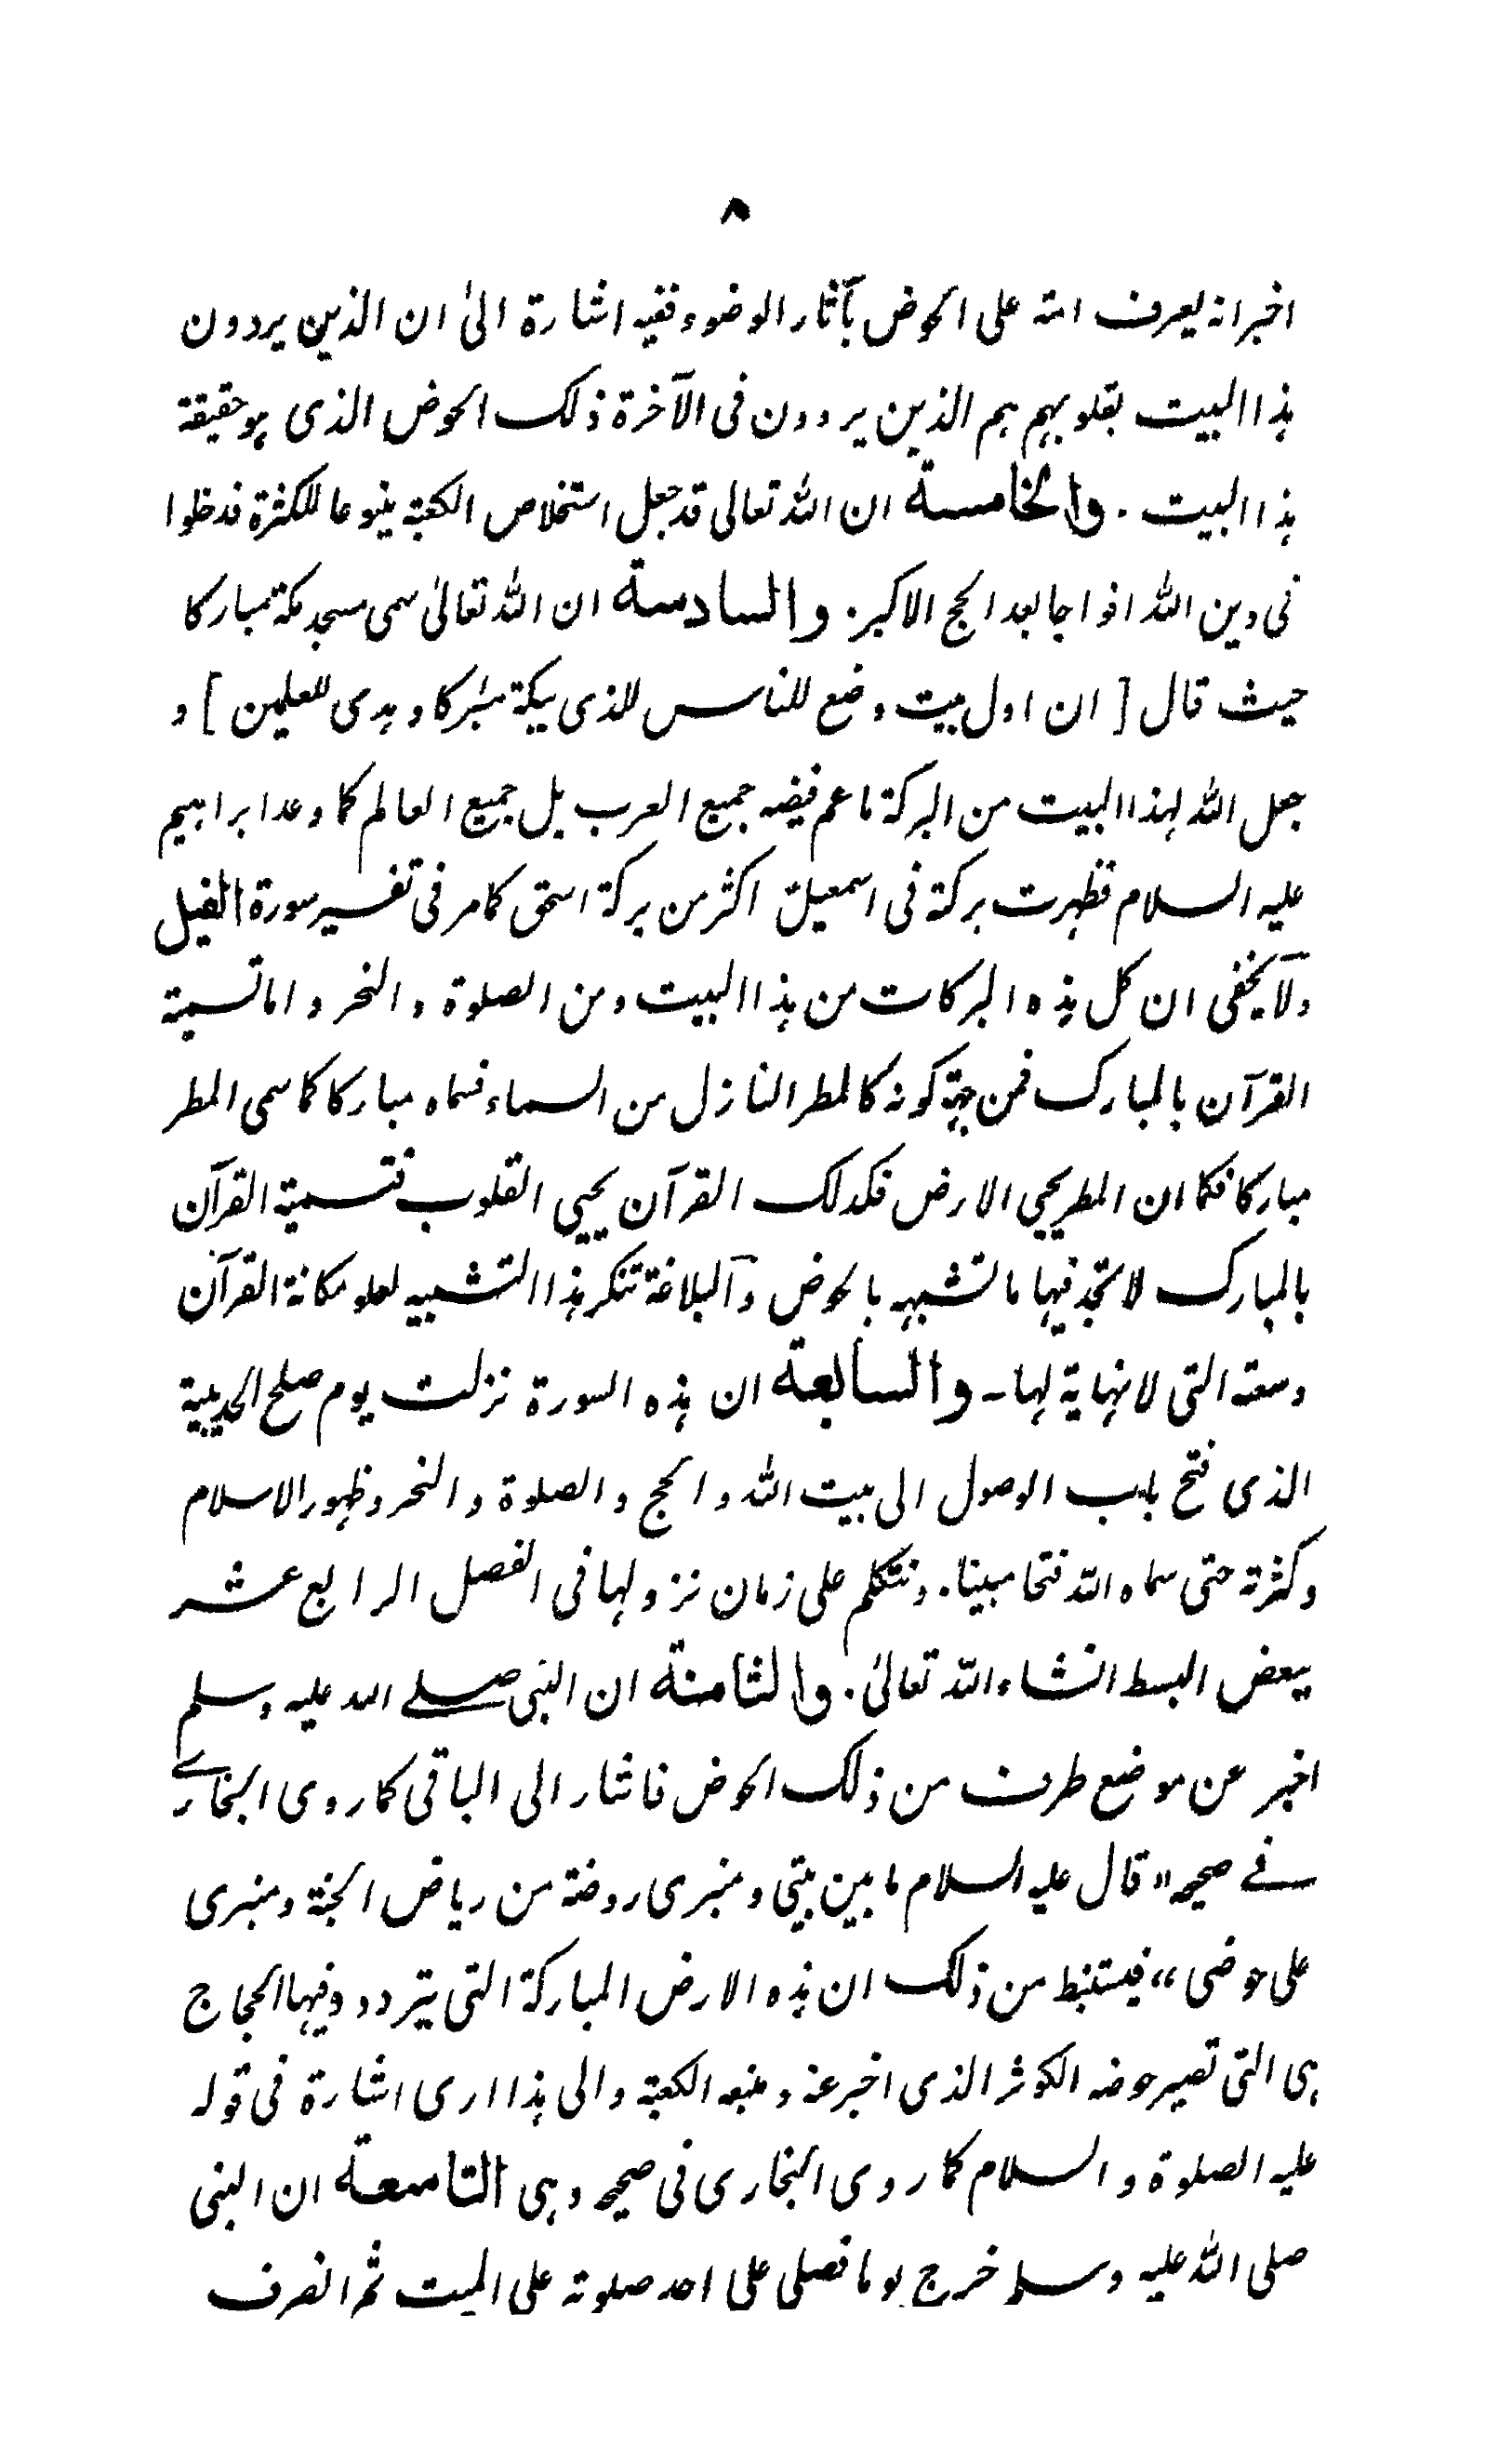 ۸
اخبر انہ یعرف امتہ علی الحوض بآثار الوضوء ففیہ اشارة الیٰ ان الذین یردون
ہذا البیت بقلوبہم ہم الذین یردون فی الآخرة ذلک الحوض الذی ہو حقیقة
ہذا البیت . والخامسة ان اللہ تعالی قد جعل استخلاص الکعبة ینبوعا للکثرة فدخلوا
فی دین اللہ افواجا بعد الحج الاکبر. والسادسة ان اللہ تعالیٰ سمی مسجد مکة مبارکا
حیث قال [ ان اول بیت وضع للناس للذی ببکة مبٰرکا و ہدی للعلمین ] و
جعل اللہ لہذا البیت من البرکة ما عم فیضہ جمیع العرب بل جمیع العالم کما وعد ابراہیم
علیہ السلام فظہرت برکة فی اسمعیلؑ اکثر من برکة اسحق کما مر فی تفسیر سورة الفیل
ولآ یخفی ان کل ہذہ البرکات من ہذا البیت ومن الصلوة و النحر و اما تسمیة
القرآن بالمبارک فمن جہة کونہ کالمطر النازل من السماء فسماہ مبارکا کما سمی المطر
مبارکا فکما ان المطر یحیی الارض فکذلک القرآن یحیی القلوب فتسمیة القرآن
بالمبارک لا تجد فیہا ما تشبہہ بالحوض وآلبلاغة تنکر ہذا التشبیہ لعلو مکانة القرآن
وسعتہ التی لا نہایة لہا۔ والسابعة ان ہذہ السورة نزلت یوم صلح الحدیبیة
الذی فتح باب الوصول الی بیت اللہ و الحج و الصلوة و النحر وظہور الاسلام
وکثرتہ حتی سماہ اللہ فتحا مبینا. ونتکلم علی زمان نزولہا فی الفصل الرابع عشر
ببعض البسط انشاء اللہ تعالیٰ. والثامنة ان النبی صلے اللہ علیہ وسلم
اخبر عن موضع طرف من ذلک الحوض فاشار الی الباقی کما روی البخارے
فے صحیحہ "قال علیہ السلام ما بین بیتی و منبری روضة من ریاض الجنة و منبری
علی حوضی" فیستنبط من ذلک ان ہذہ الارض المبارکة التی یتردد وفیہا الحجاج
ہی التی تصیر حوضہ الکوثر الذی اخبر عنہ و منبعہ الکعبة والی ہذا اری اشارة فی قولہ
علیہ الصلوة و السلام کما روی البخاری فی صحیحہ وہی التاسعة ان النبی
صلی اللہ علیہ وسلم خرج یوما فصلی علی احد صلوتہ علی المیت ثم انصرف